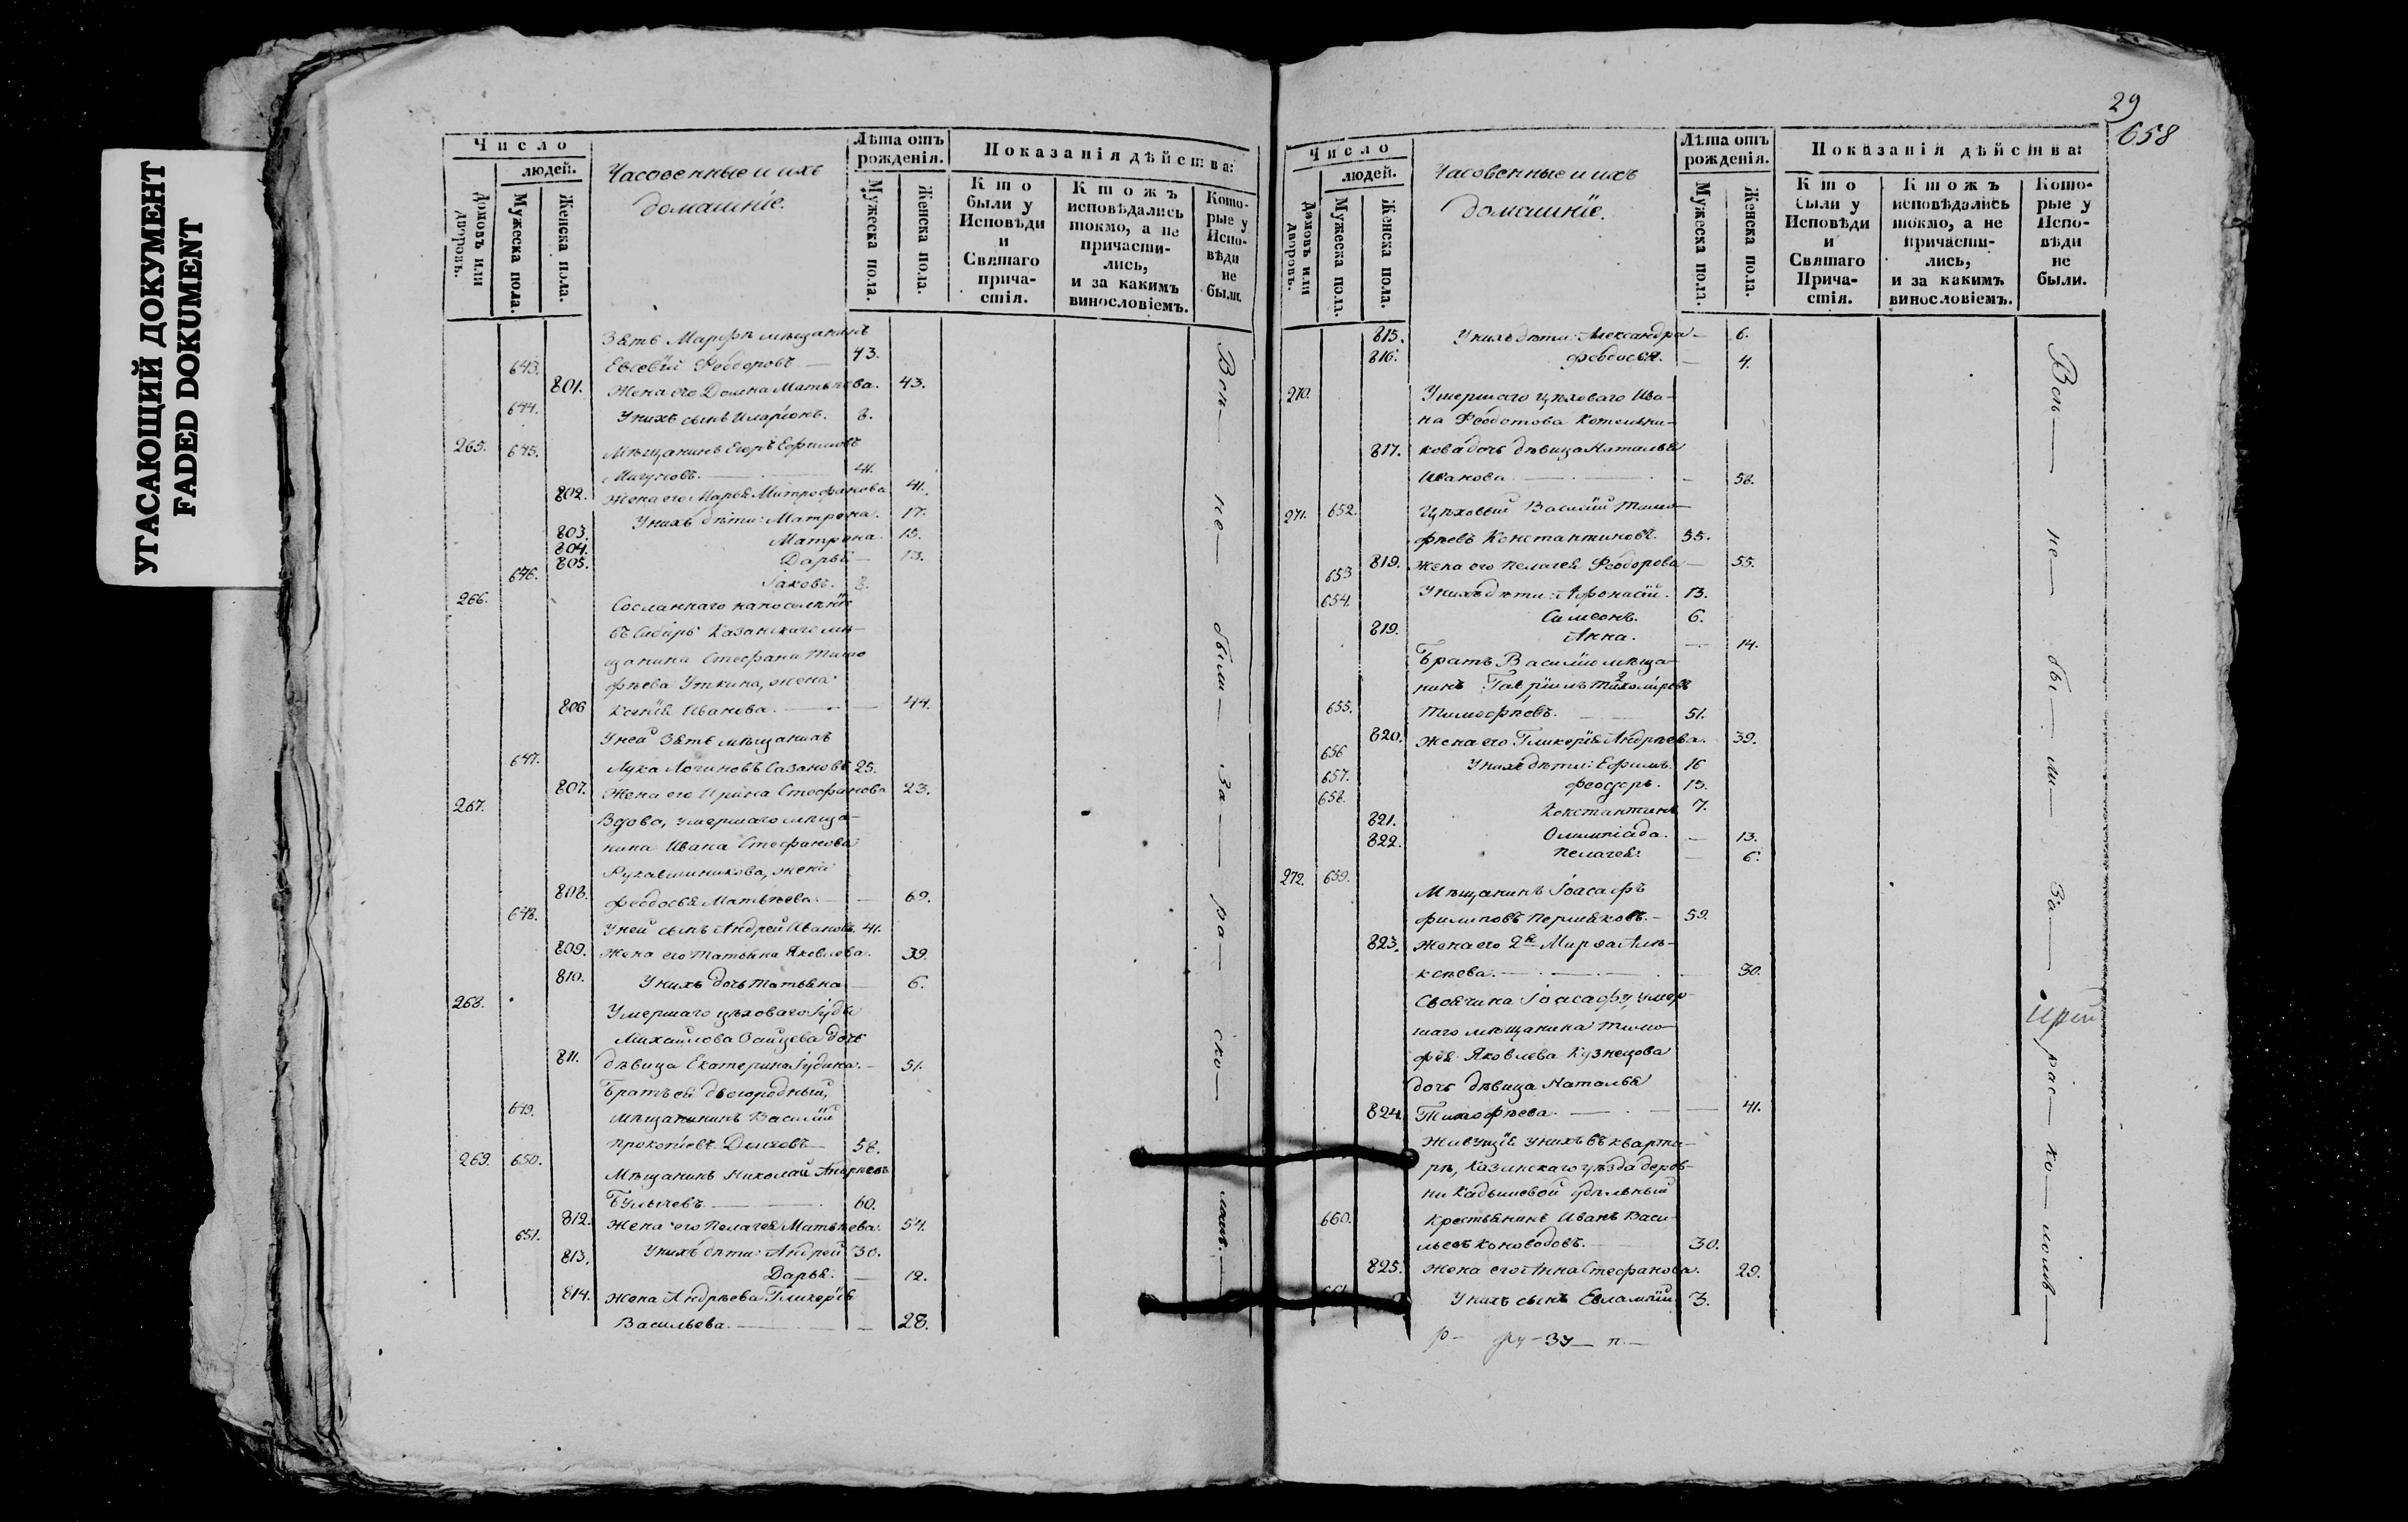 УГАСАЮЩИЙ ДОКУМЕНТ
FADED DOKUMENT
Число
людей.
Домовъ или дворовъ.
Мужеска пола.
Женска пола.
Часовенные и ихъ
домашніе.
Лѣта отъ рожденія.
Мужеска пола.
Женска пола.
Показанія дѣйства:
Кто были у Исповѣди и Святаго причастія.
Ктожъ исповѣдались токмо, а не причастились, и за какимъ винословіемъ.
Которые у Исповѣди не были.
Зять Марфѣ мѣщанинъ
643. Евсевій Феодоровъ — 43.
801. Жена его Домна Матвѣева. 43.
644. У нихъ сынъ Иларіонъ. 8.
265. 645. Мѣщанинъ Егоръ Ефимовъ
Мигуновъ. — 41.
802. Жена его Марья Митрофанова 41.
803. У нихъ дѣти: Матрона. 17.
804. Матрона. 15.
805. Дарья — 13.
646. Іаковъ. 8.
266. Сосланнаго на поселѣніе
въ Сибирь Казанскаго мѣ-
щанина Стефана Тимо
фѣева Уткина, жена
806 Ксенія Иванова. — 44.
У ней зять мѣщанинъ
647. Лука Логиновъ Сазановъ 25.
807. Жена его Ирина Стефанова 23.
267. Вдова, умершаго мѣща-
нина Ивана Стефанова
Рукавишникова, жена
808. Феодосья Матвѣева. — 69.
648. У ней сынъ Андрей Ивановъ. 41.
809. Жена его Татьяна Яковлева. 39.
810. У нихъ дочь Татьяна — 6.
268. Умершаго цѣховаго Іуды
Михайлова дочь
811. дѣвица Екатерина Іудина. — 51.
Братъ ей двоюродный,
649. мѣщанинъ Василій
Прокопіевъ — 58.
269. 650. Мѣщанинъ Николай Андреевъ
Булычевъ. — 60.
812. Жена его Пелагея Матвѣева. 54.
651. У нихъ дѣти: Андрей 30.
813. Дарья. — 12.
814. Жена Андрѣева Гликерія
Васильева. — 28.
Всѣ — не — были — за — ра — ско — ломъ. —
29
658
Число
людей.
Домовъ или дворовъ.
Мужеска пола.
Женска пола.
Часовенные и ихъ
домашніе.
Лѣта отъ рожденія.
Мужеска пола.
Женска пола.
Показанія дѣйства:
Кто были у Исповѣди и Святаго Причастія.
Ктожъ исповѣдались токмо, а не причастились, и за какимъ винословіемъ.
Которые у Исповѣди не были.
815. У нихъ дѣти: Александра — 6.
816. Феодосья. — 4.
270. Умершаго цѣховаго Ива-
на Феодотова Котельни-
817. кова дочь дѣвица Наталья
Иванова — 58.
271. 652. Цѣховый Василій Тимо-
фѣевъ Константиновъ. 55.
819. Жена его Пелагея Феодорова — 55.
653 У нихъ дѣти: Афонасій. 13.
654. Симеонъ. 6.
819. Анна. — 14.
Братъ Василію мѣща-
нинъ Гавріилъ Тихоміровъ
655. Тимофѣевъ. 51.
820. Жена его Гликерія Андрѣева. 39.
656 У нихъ дѣти: Ефимъ. 16
657. Феодоръ. 13.
658. Константинъ 7.
821. Олимпіада. — 13.
822. Пелагея. — 6.
272. 659. Мѣщанинъ Іоасафъ
Филиповъ Пермяковъ. — 59.
823. Жена его 2я Марфа Алѣ-
ксѣева. — 30.
Своячина Іоасафу, умер-
шаго мѣщанина Тимо-
фея Яковлева Кузнецова
дочь дѣвица Наталья
824. Тимофѣева. — 41.
Живущія у нихъ въ кварти-
рѣ, Казанскаго уѣзда дерев-
ни Кадышевой удѣльный
660. Крестьянинъ Иванъ Васи-
льевъ Коноводовъ. 30.
825. Жена его Анна Стефанова. 29.
661. У нихъ сынъ Евлампій. 3.
Всѣ — не — бы — ли — за — рас — ко — ломъ —